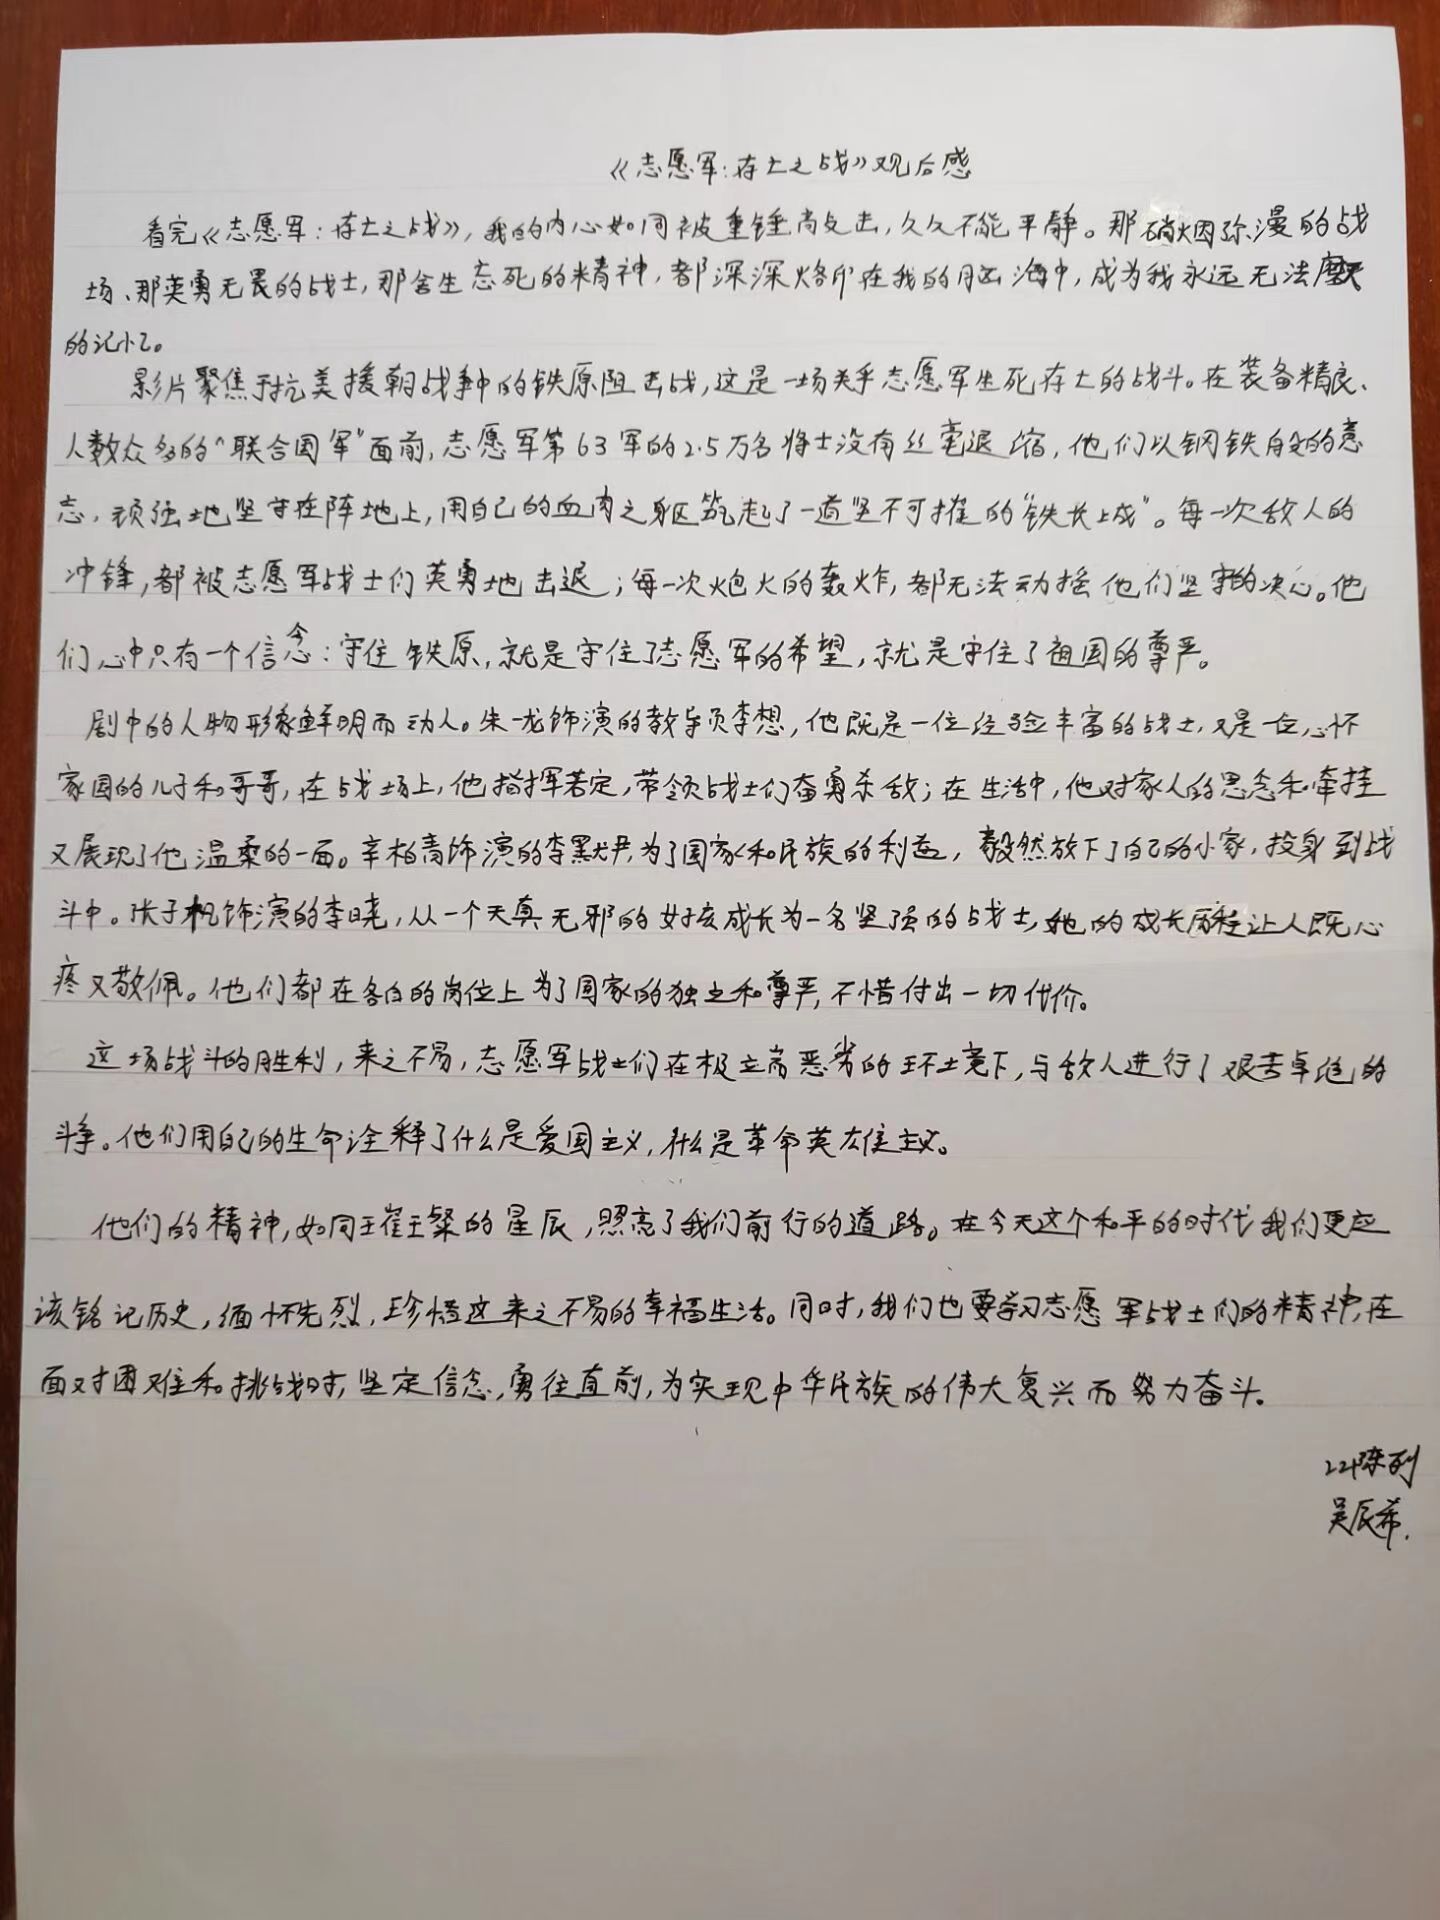 《志愿军:存亡之战》观后感
看完《志愿军:存亡之战》,我的内心如同被重锤敲击,久久不能平静。那硝烟弥漫的战
场、那英勇无畏的战士,那舍生忘死的精神,都深深烙印在我的脑海中,成为我永远无法磨灭
的记忆。
影片聚焦于抗美援朝战争中的铁原阻击战,这是一场关乎志愿军生死存亡的战斗。在装备精良、
人数众多的“联合国军”面前,志愿军第63军的2.5万名将士没有丝毫退缩,他们以钢铁般的意
志,顽强地坚守在阵地上,用自己的血肉之躯筑起了一道坚不可摧的“铁长城”。每一次敌人的
冲锋,都被志愿军战士们英勇地击退;每一次炮火的轰炸,都无法动摇他们坚守的决心。他
们心中只有一个信念:守住铁原,就是守住了志愿军的希望,就是守住了祖国的尊严。
剧中的人物形象鲜明而动人。朱一龙饰演的教导员李想,他既是一位经验丰富的战士,又是一位心怀
家国的儿子和哥哥,在战场上,他指挥若定,带领战士们奋勇杀敌;在生活中,他对家人的思念和牵挂
又展现了他温柔的一面。辛柏青饰演的李默尹,为了国家和民族的利益,毅然放下了自己的小家,投身到战
斗中。张子枫饰演的李晓,从一个天真无邪的女孩成长为一名坚强的战士,她的成长历程让人既心
疼又敬佩。他们都在各自的岗位上为了国家的独立和尊严,不惜付出一切代价。
这场战斗的胜利,来之不易,志愿军战士们在极端恶劣的环境下,与敌人进行了艰苦卓绝的
斗争。他们用自己的生命诠释了什么是爱国主义,什么是革命英雄主义。
他们的精神,如同璀璨的星辰,照亮了我们前行的道路。在今天这个和平的时代我们更应
该铭记历史,缅怀先烈,珍惜这来之不易的幸福生活。同时,我们也要学习志愿军战士们的精神,在
面对困难和挑战时,坚定信念,勇往直前,为实现中华民族的伟大复兴而努力奋斗。
22陈列
吴辰希.